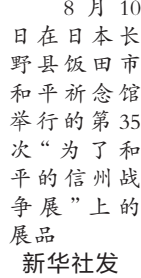 8 月 10
日在日本长
野县饭田市
和平祈念馆
举行的第 35
次“为了和
平的信州战
争展”上的
展品
新华社发